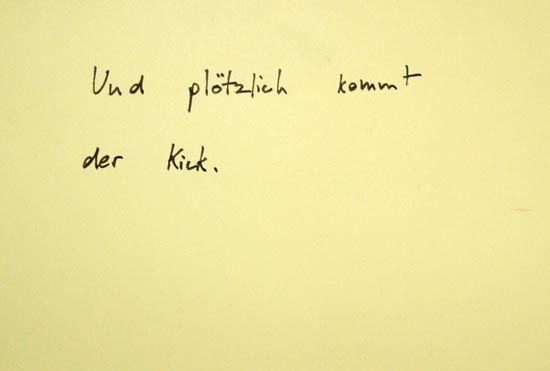 Und plötzlich kommt
der Kick.